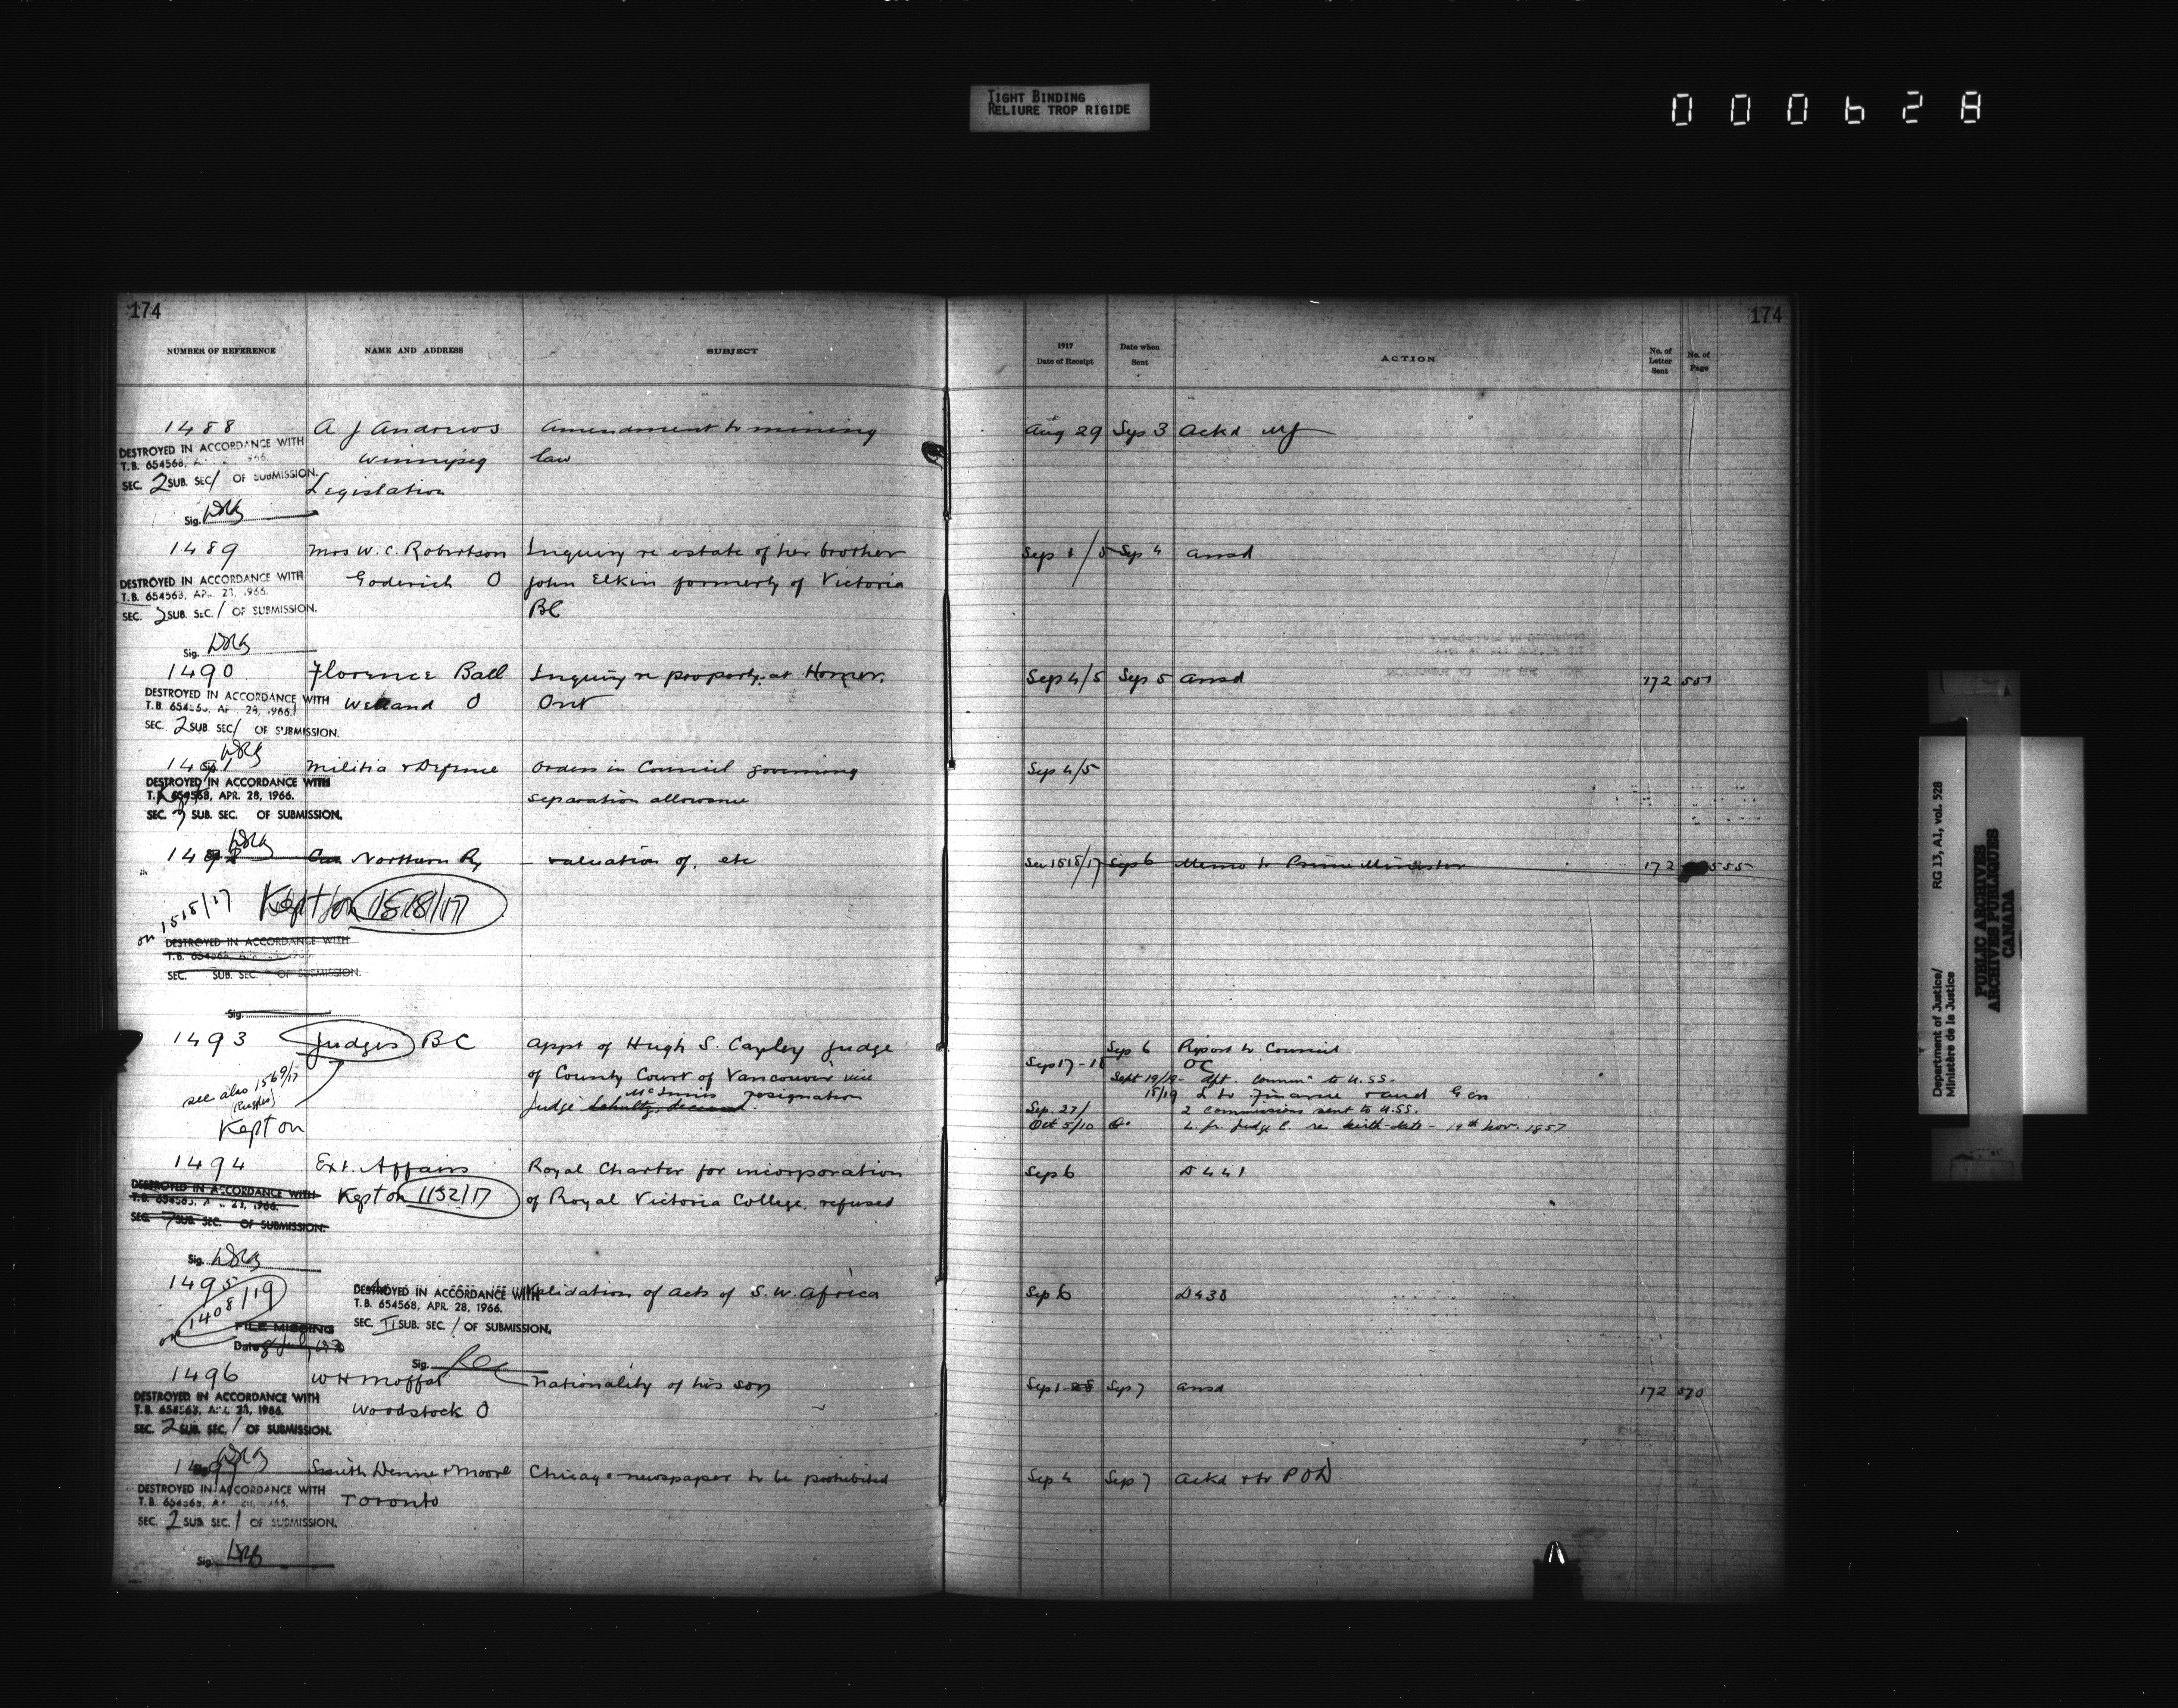 TIGHT BINDING
RELIURE TROP RIGIDE
000628
174
174
NUMBER OF REFERENCE NAME AND ADDRESS SUBJECT 1917 Date of Receipt Date when Sent ACTION No. of Letter Sent No. of Page
1488 A J Andrews Amendment to mining Aug 29 Sep 3 Ackd MJ
DESTROYED IN ACCORDANCE WITH
T.B. 654568, 1966.
Winnipeg law
SEC. 2 SUB. SEC / OF SUBMISSION.
Legislation
Sig.
1489 Mrs W. C. Robertson Inquiry re estate of her brother Sep 1/5 Sep 4 Ansd
DESTROYED IN ACCORDANCE WITH
T.B. 654568, APR. 28, 1966.
Goderich O John Elkin formerly of Victoria
SEC. 2 SUB. SEC. / OF SUBMISSION.
BC
Sig.
1490 Florence Ball Inquiry re property at Homer, Sep 4/5 Sep 5 Ansd 172 551
DESTROYED IN ACCORDANCE WITH
T.B. 654568, APR. 28, 1966.
Welland O Ont
SEC. 2 SUB SEC / OF SUBMISSION.
1491 Militia & Defence Orders in Council governing Sep 4/5
DESTROYED IN ACCORDANCE WITH
T.B. 654568, APR. 28, 1966.
separation allowance
SEC. 7 SUB. SEC. OF SUBMISSION.
1492 Can Northern Ry – valuation of, etc See 1518/17 Sep 6 Memo to Prime Minister 172 555
on 1518/17 Kept on 1518/17
DESTROYED IN ACCORDANCE WITH
T.B. 654568,
SEC. SUB. SEC. OF SUBMISSION.
Sig.
1493 Judges BC Appt of Hugh S. Cayley Judge Sep 6 Report to Council
Sep 17-18 OC
of County Court of Vancouver vice Sept 19/19- dft. commn to U.SS.
see also 1569/17
(Ruggles)
McInnis resignation 18/19 L to Finance & Aud Gen
Judge Schultz, deceased. Sep. 27/ 2 commissions sent to U.SS.
Kept on Oct 5/10 L. fr. Judge C. re birth-date - 19th Nov. 1857
1494 Ext. Affairs Royal Charter for incorporation Sep 6 D441
DESTROYED IN ACCORDANCE WITH
T.B. 654568, APR. 28, 1966.
Kept on 1152/17 of Royal Victoria College, refused
SEC. 7 SUB. SEC. OF SUBMISSION.
Sig.
1495 Validation of acts of S. W. Africa Sep 6 D438
DESTROYED IN ACCORDANCE WITH
T.B. 654568, APR. 28, 1966.
SEC. II SUB. SEC. / OF SUBMISSION.
on 1408/19
FILE MISSING
Date
Sig.
1496 W H Moffat Nationality of his son Sep 1 Sep 7 Ansd 172 570
DESTROYED IN ACCORDANCE WITH
T.B. 654568, APR. 28, 1966.
Woodstock O
SEC. 2 SUB. SEC. / OF SUBMISSION.
1497 Smith Denne & Moore Chicago newspaper to be prohibited Sep 4 Sep 7 Ackd & tr P O D
DESTROYED IN ACCORDANCE WITH
T.B. 654568,
Toronto
SEC. 2 SUB SEC. 1 OF SUBMISSION.
Sig.
Department of Justice/
Ministère de la Justice
RG 13, A1, vol. 528
PUBLIC ARCHIVES
ARCHIVES PUBLIQUES
CANADA